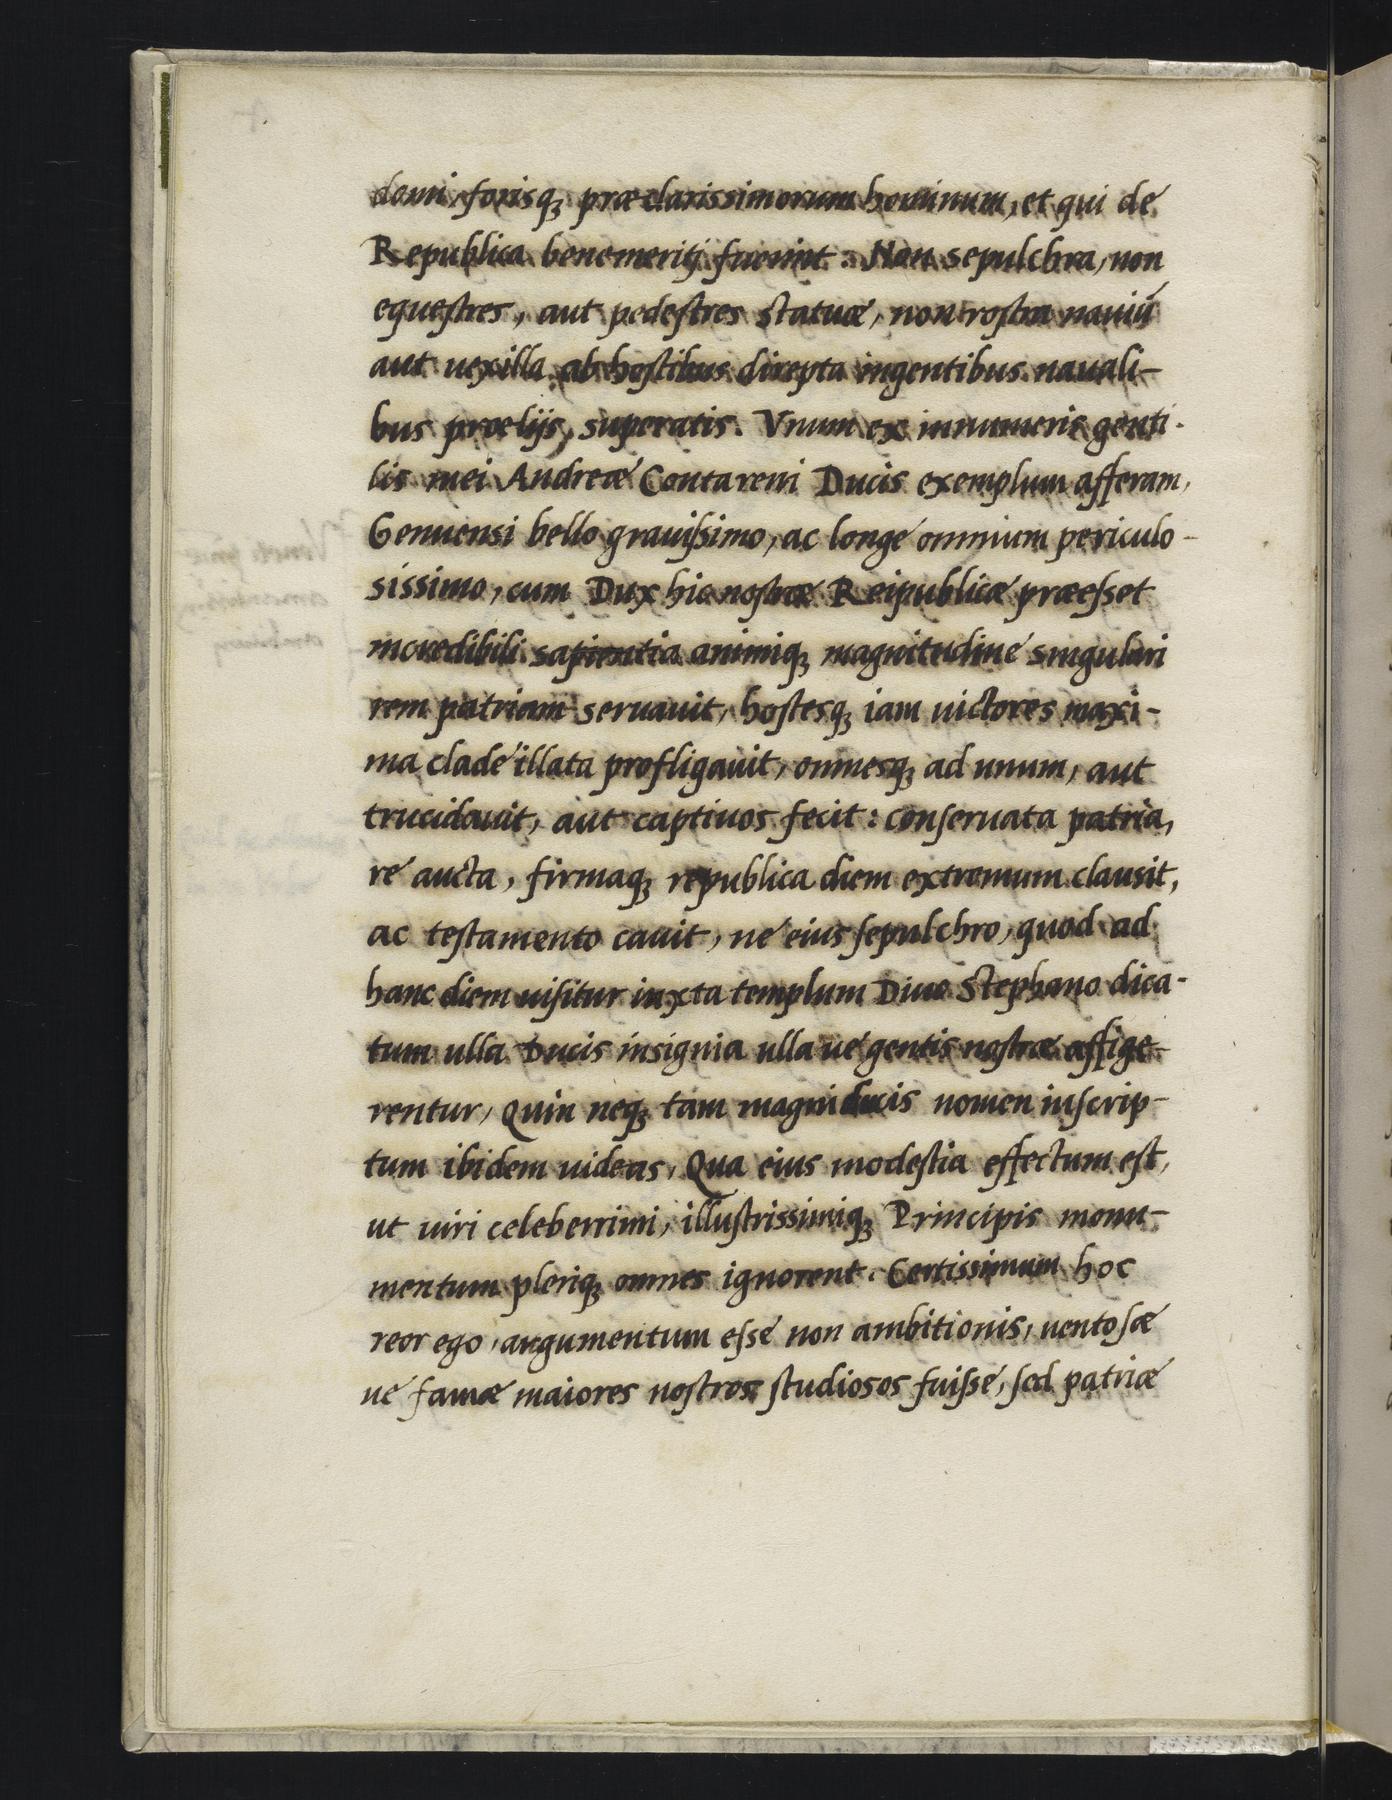 domi, forisq; præclarissimorum hominum, et qui de
Republica benemeritj fuerint: Non sepulchra, non
equeſtres, aut pedeſtres statuæ, non roſtra nauiũ
aut uexilla ab hoſtibus direpta ingentibus nauali-
bus prœlijs, superatis. Vnum ex innumeris genti-
lis mei Andreæ Contareni Ducis exemplum afferam,
Genuensi bello grauiſsimo, ac longe omnium periculo-
sissimo, cum Dux hic noſtræ Reipublicæ præeſset
incredibili sapientia animiq; magnitudine singulari
rem patriam seruauit, hoſtesq; iam uictores maxi-
ma clade illata profligauit, omnesq; ad unum, aut
trucidauit, aut captiuos fecit: conſeruata patria,
re aucta, firmaq; republica diem extremum clausit,
ac teſtamento cauit, ne eius ſepulchro, quod ad
hanc diem uiſitur iuxta templum Diuo Stephano dica-
tum ulla Ducis insignia ulla ue gentis noſtræ affige-
rentur, Quin neq; tam magni ducis nomen inſcrip-
tum ibidem uideas, Qua eius modeſtia effectum eſt,
ut uiri celeberrimi, illuſtrissimiq; Principis monu-
mentum pleriq; omnes ignorent. Certissimum hoc
reor ego, argumentum eſse non ambitionis, uentoſæ
ue famæ maiores noſtros ſtudiosos fuiſse, ſed patriæ